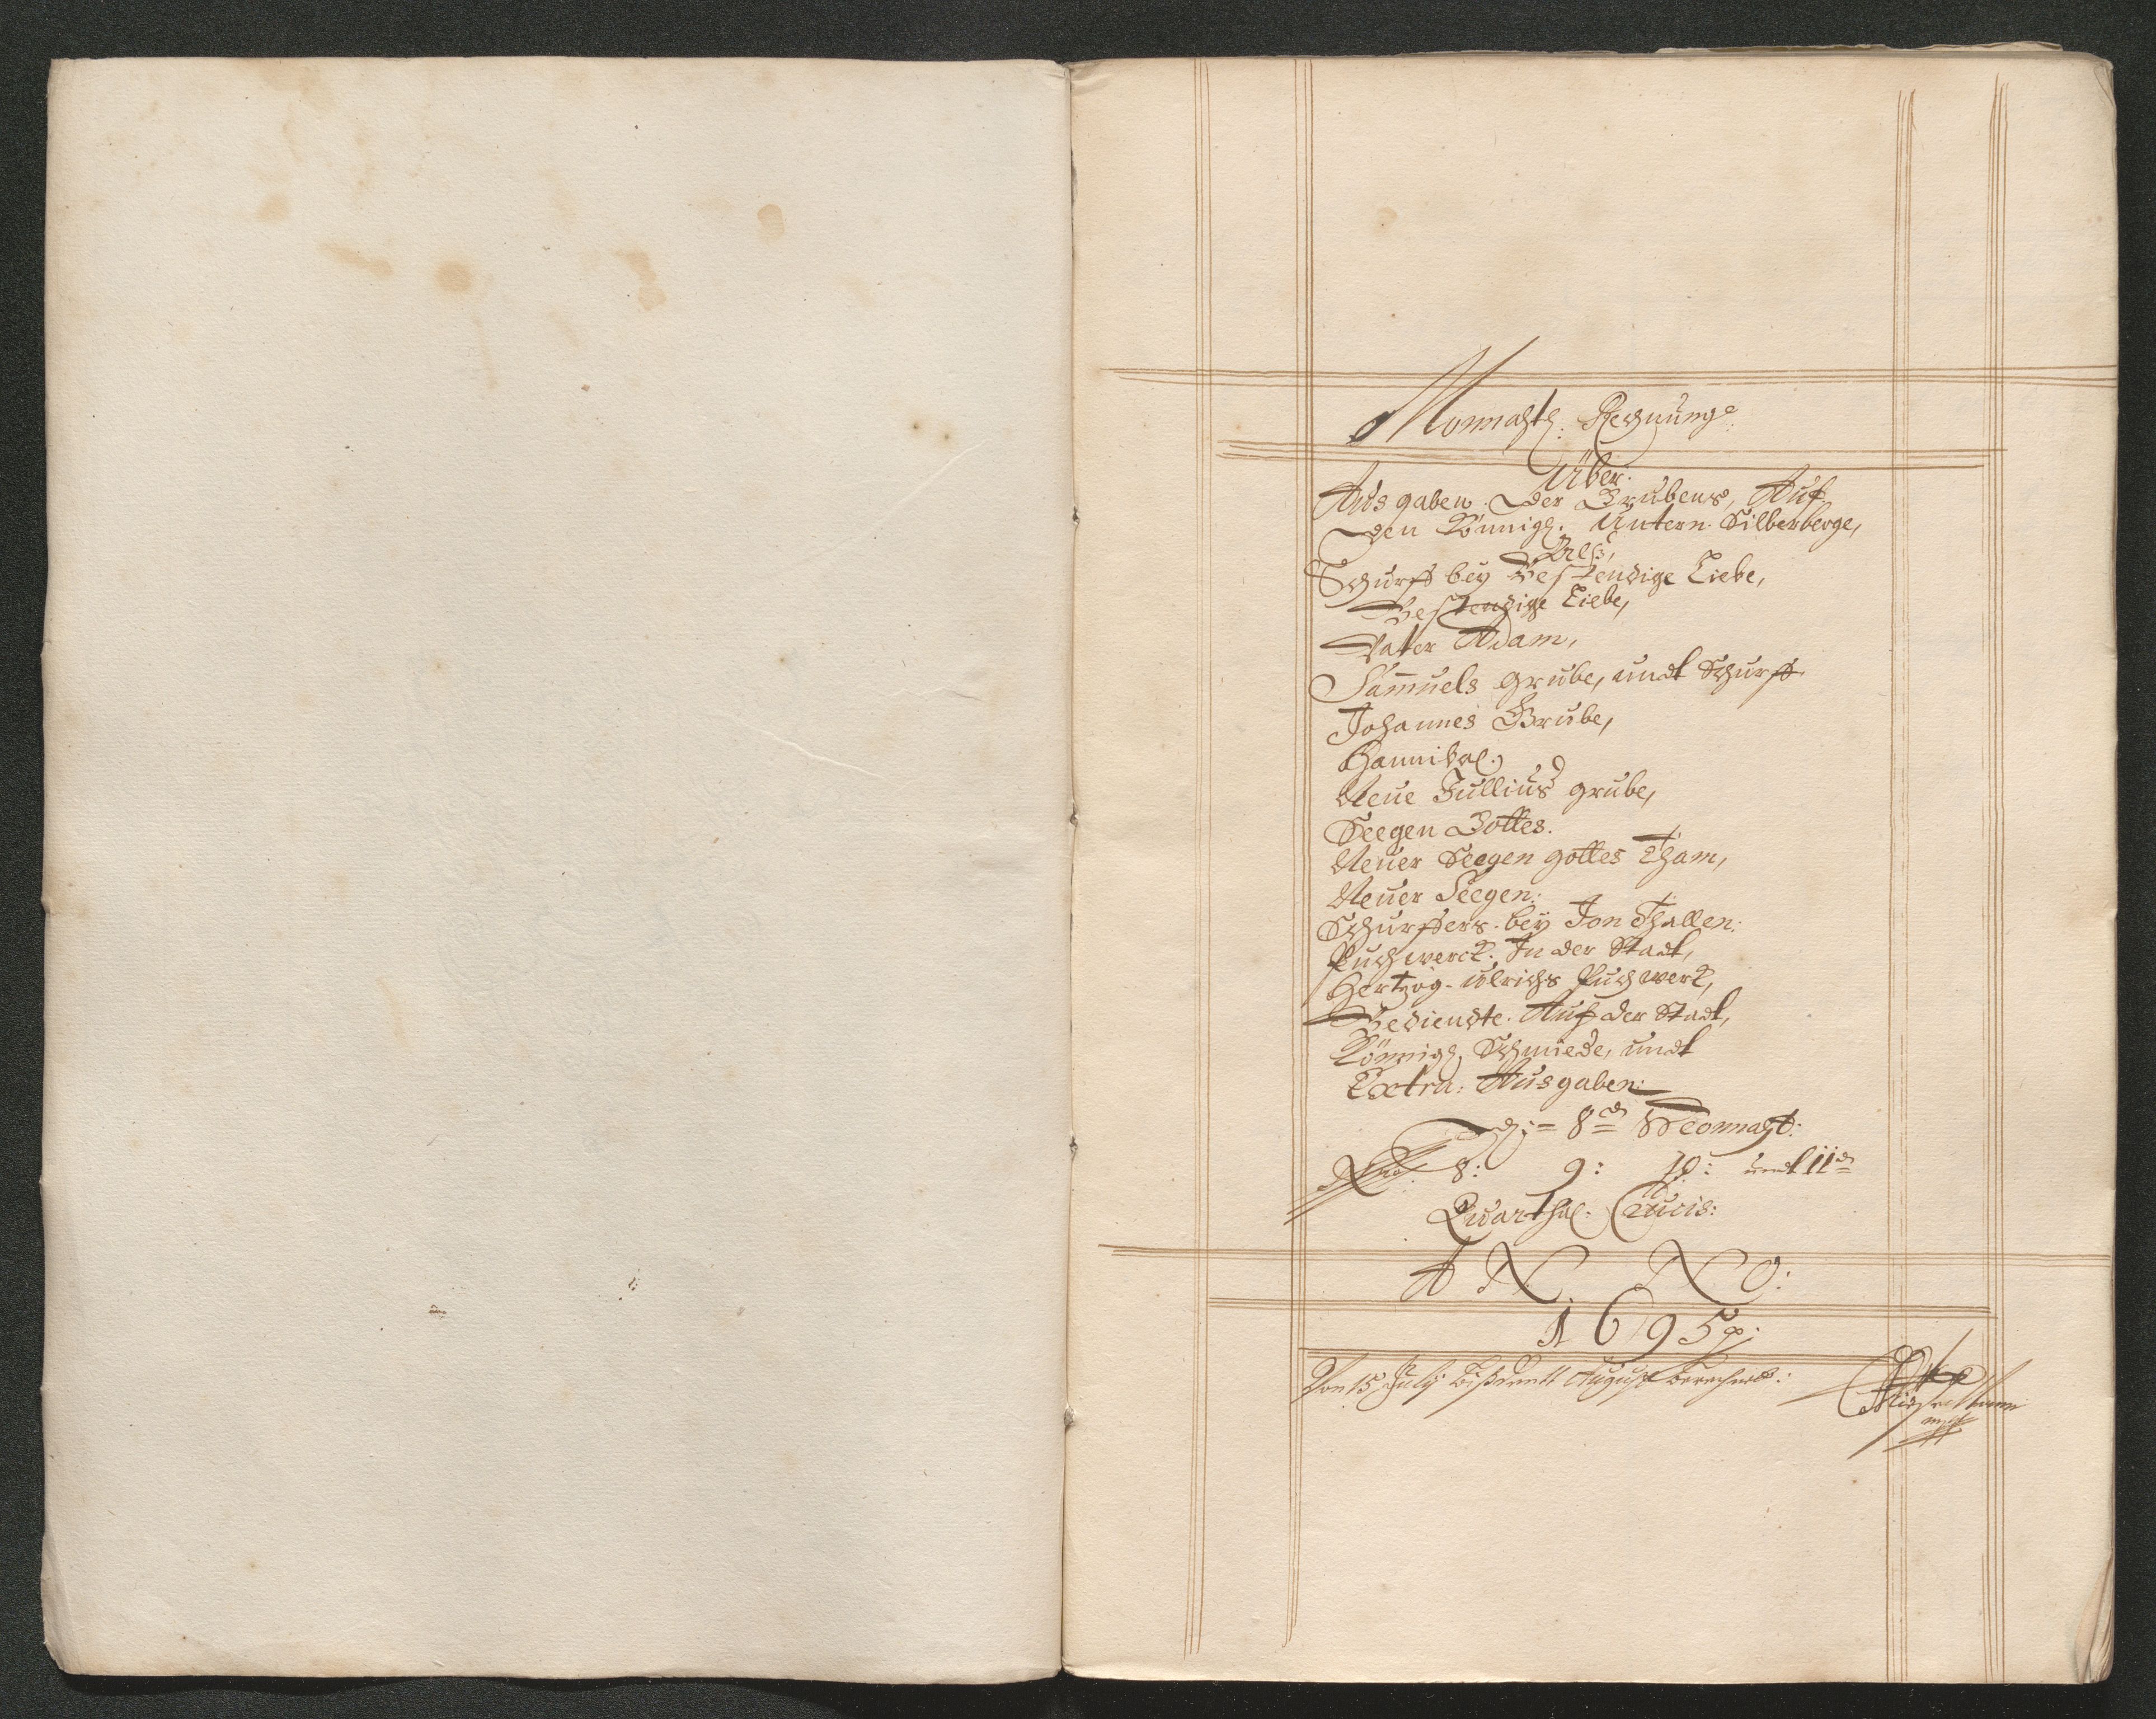 Monnahtl: Rechnunge
Über.
Ausgaben der Grubens, Auf
den Könnigl. Untern Silberberge,
Alß,
Schurff bey Bestendige Liebe,
Bestendige Liebe,
Vater Adam,
Samuels Grube, undt Schurff
Johannes Grube,
Hannibal.
Neue Jullius grube,
Seegen Gottes.
Neuer Seegen gottes Tham,
Neuer Seegen:
Schurffens bey Jon Thallen:
Puchwerck: In der Stadt,
Hertzog-ulrichs Puchwerk,
Bediendte Auf der Stadt,
Könnigl. Schmiede, undt
Extra: Ausgaben:
8 Monnaht:
No 8: 9: 10: undt 11
Quarthal: Crucis:
ANNO:
1695
Von 15 July biß August berechnet: